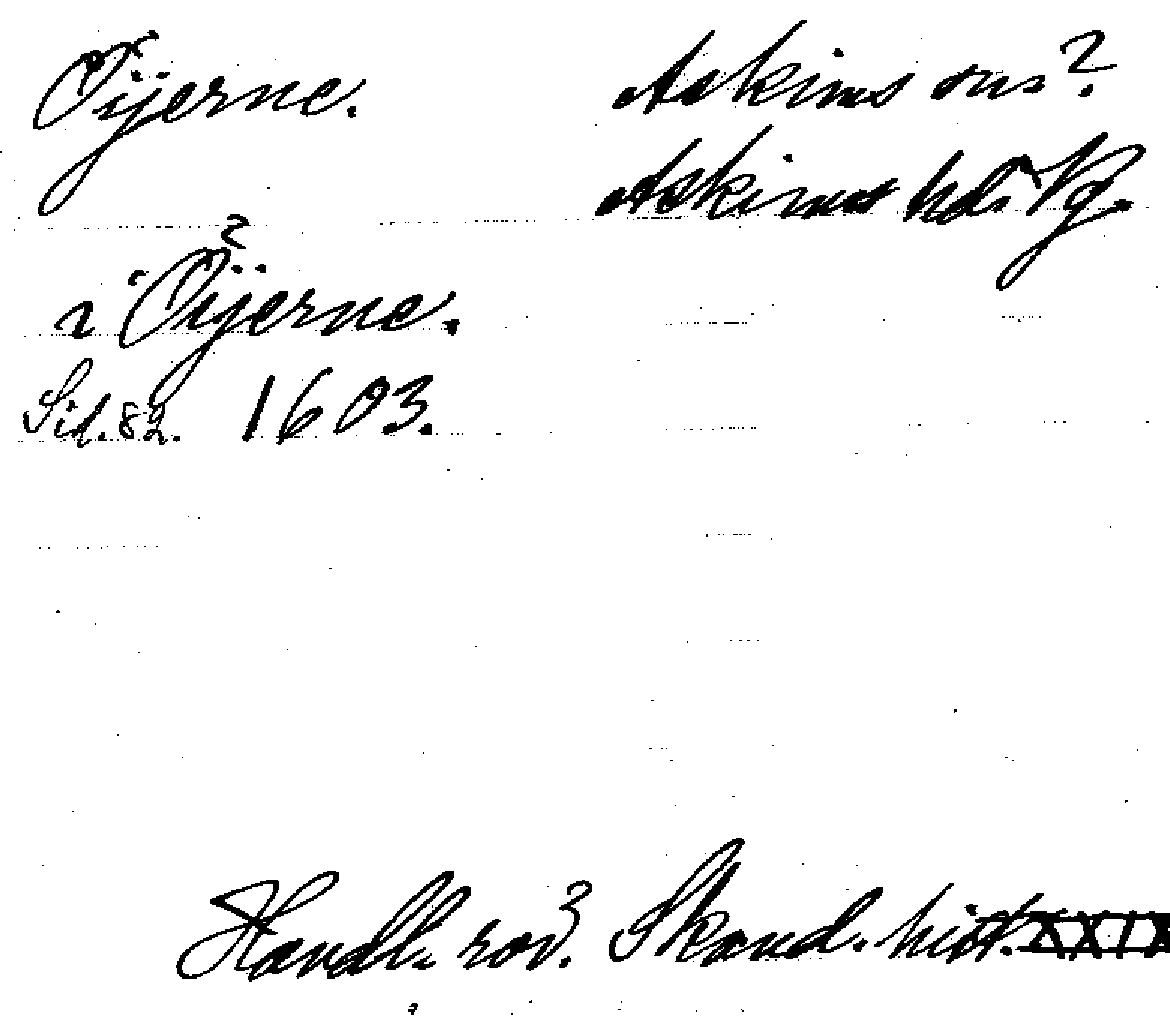 Öijerne. Askims sn?
Askims hd. Vg.
i Öijerne.
Sid. 82. 1603.
Handl. rör. Skand. hist. XXIX